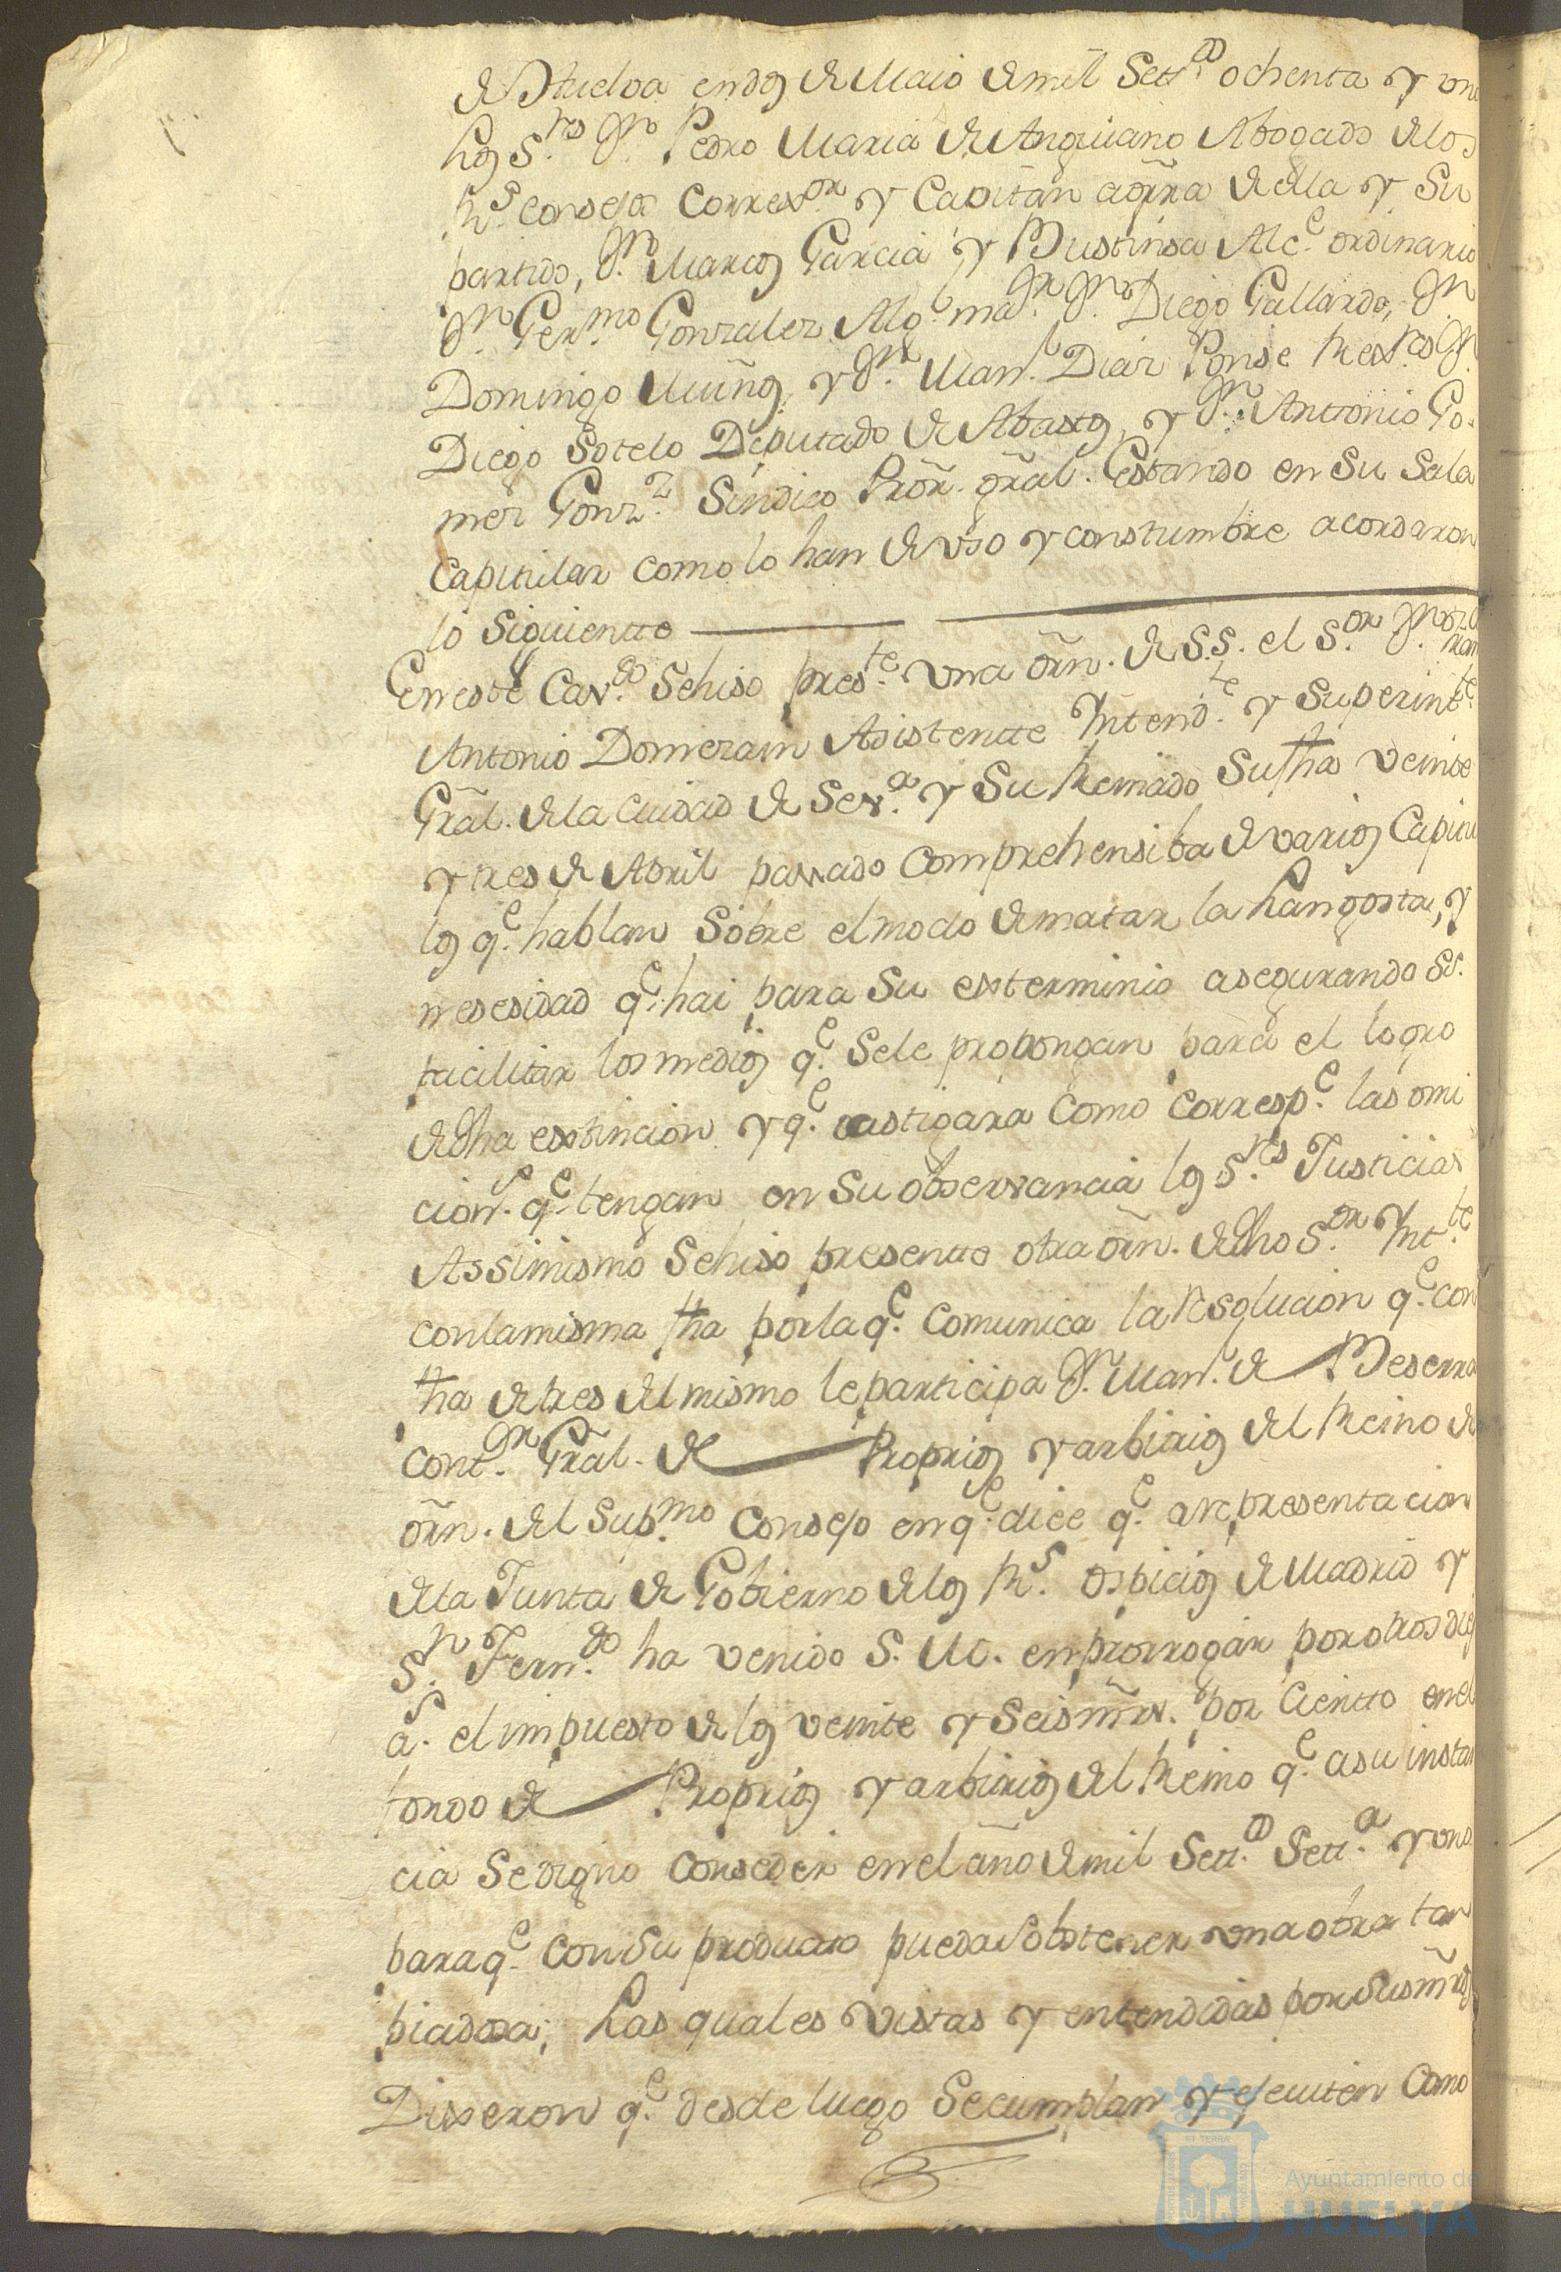 de Huelva en dos de Maio de mil Sett.os ochenta y un
los S.res Dn. Pedro Maria de Anguiano Abogado de los
R.s Consejos Correxor. y Capitan a grra de ella y Su
partido, Dn. Marcos Garcia y Bustinsa Alc.e ordinario
Dn. Ger.mo Gonzalez Alg.l ma.or Dn. Diego Gallardo, Dn.
Domingo Muños, y Dn. Man.l Diaz Ponse Rex.res Dn.
Diego Sotelo Deputado de Abastos, y Dn. Antonio Go-
mez Gonz.z Sindico Prör. gräl. Estando en su Sala
Capitular como lo han de uso y constumbre acordaron
lo Siguientte
En este Cav.do Sehiso pres.te una orñ. de S.S. el S.or Dn.
Antonio Domezain Asistentte Yntend.te y Superint.te
Gräl. dela Ciudad de Sev.a y Su Reinado Su fha veinte
y tres de Abril passado comprehensiba de varios Capitu
los q.e hablan Sobre el modo de matar la Langosta, y
nesesidad q.e hai para Su exterminio asegurando SS.
facilitar los medios q.e Sele propongan para el logro
de dha extincion y q.e castigara Como Corresp.e las omi
cion.s q.e tengan en Su observancia los S.res Justicias
Assimismo Sehiso presentte otra orñ. de dho S.or Ynt.te
con la misma fha por la q.e Comunica la Resolucion q.e con
fha de tres del mismo le participa Dn. Man.l de Beserra
Cont.or Gräl. de Proprios y arbitrios del Reino de
orñ. del Sup.mo Consejo en q.e dice q.e a representacion
dela Junta de Gobierno delos R.s Ospicios de Madrid y
S.n Fern.do ha venido S. M. en prorrogar por otros dies
a.s el impuesto de los veinte y Seis mrs. por Cientto en el
fondo de Proprios y arbitrios del Reino q.e a su instan
cia Se digno Conseder en el año de mil Sett.os Sett.a y uno
para q.e con Su producto pueda Sobstener una obra tan
piadosa; Las quales vistas y entendidas por Sus mrds
Dixeron q.e desde luego Secumplan y ejecuten Como
Ayuntamiento de
HUELVA